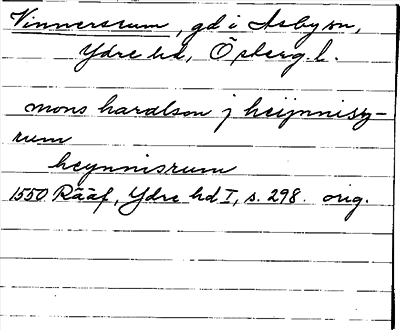 Vinnersrum, gd i Asby sn,
Ydre hd, Östergl.
mons haraldson j heijnnisz-
rum
heynnisrum
1550 Rääf, Ydre hd I, s. 298. orig.